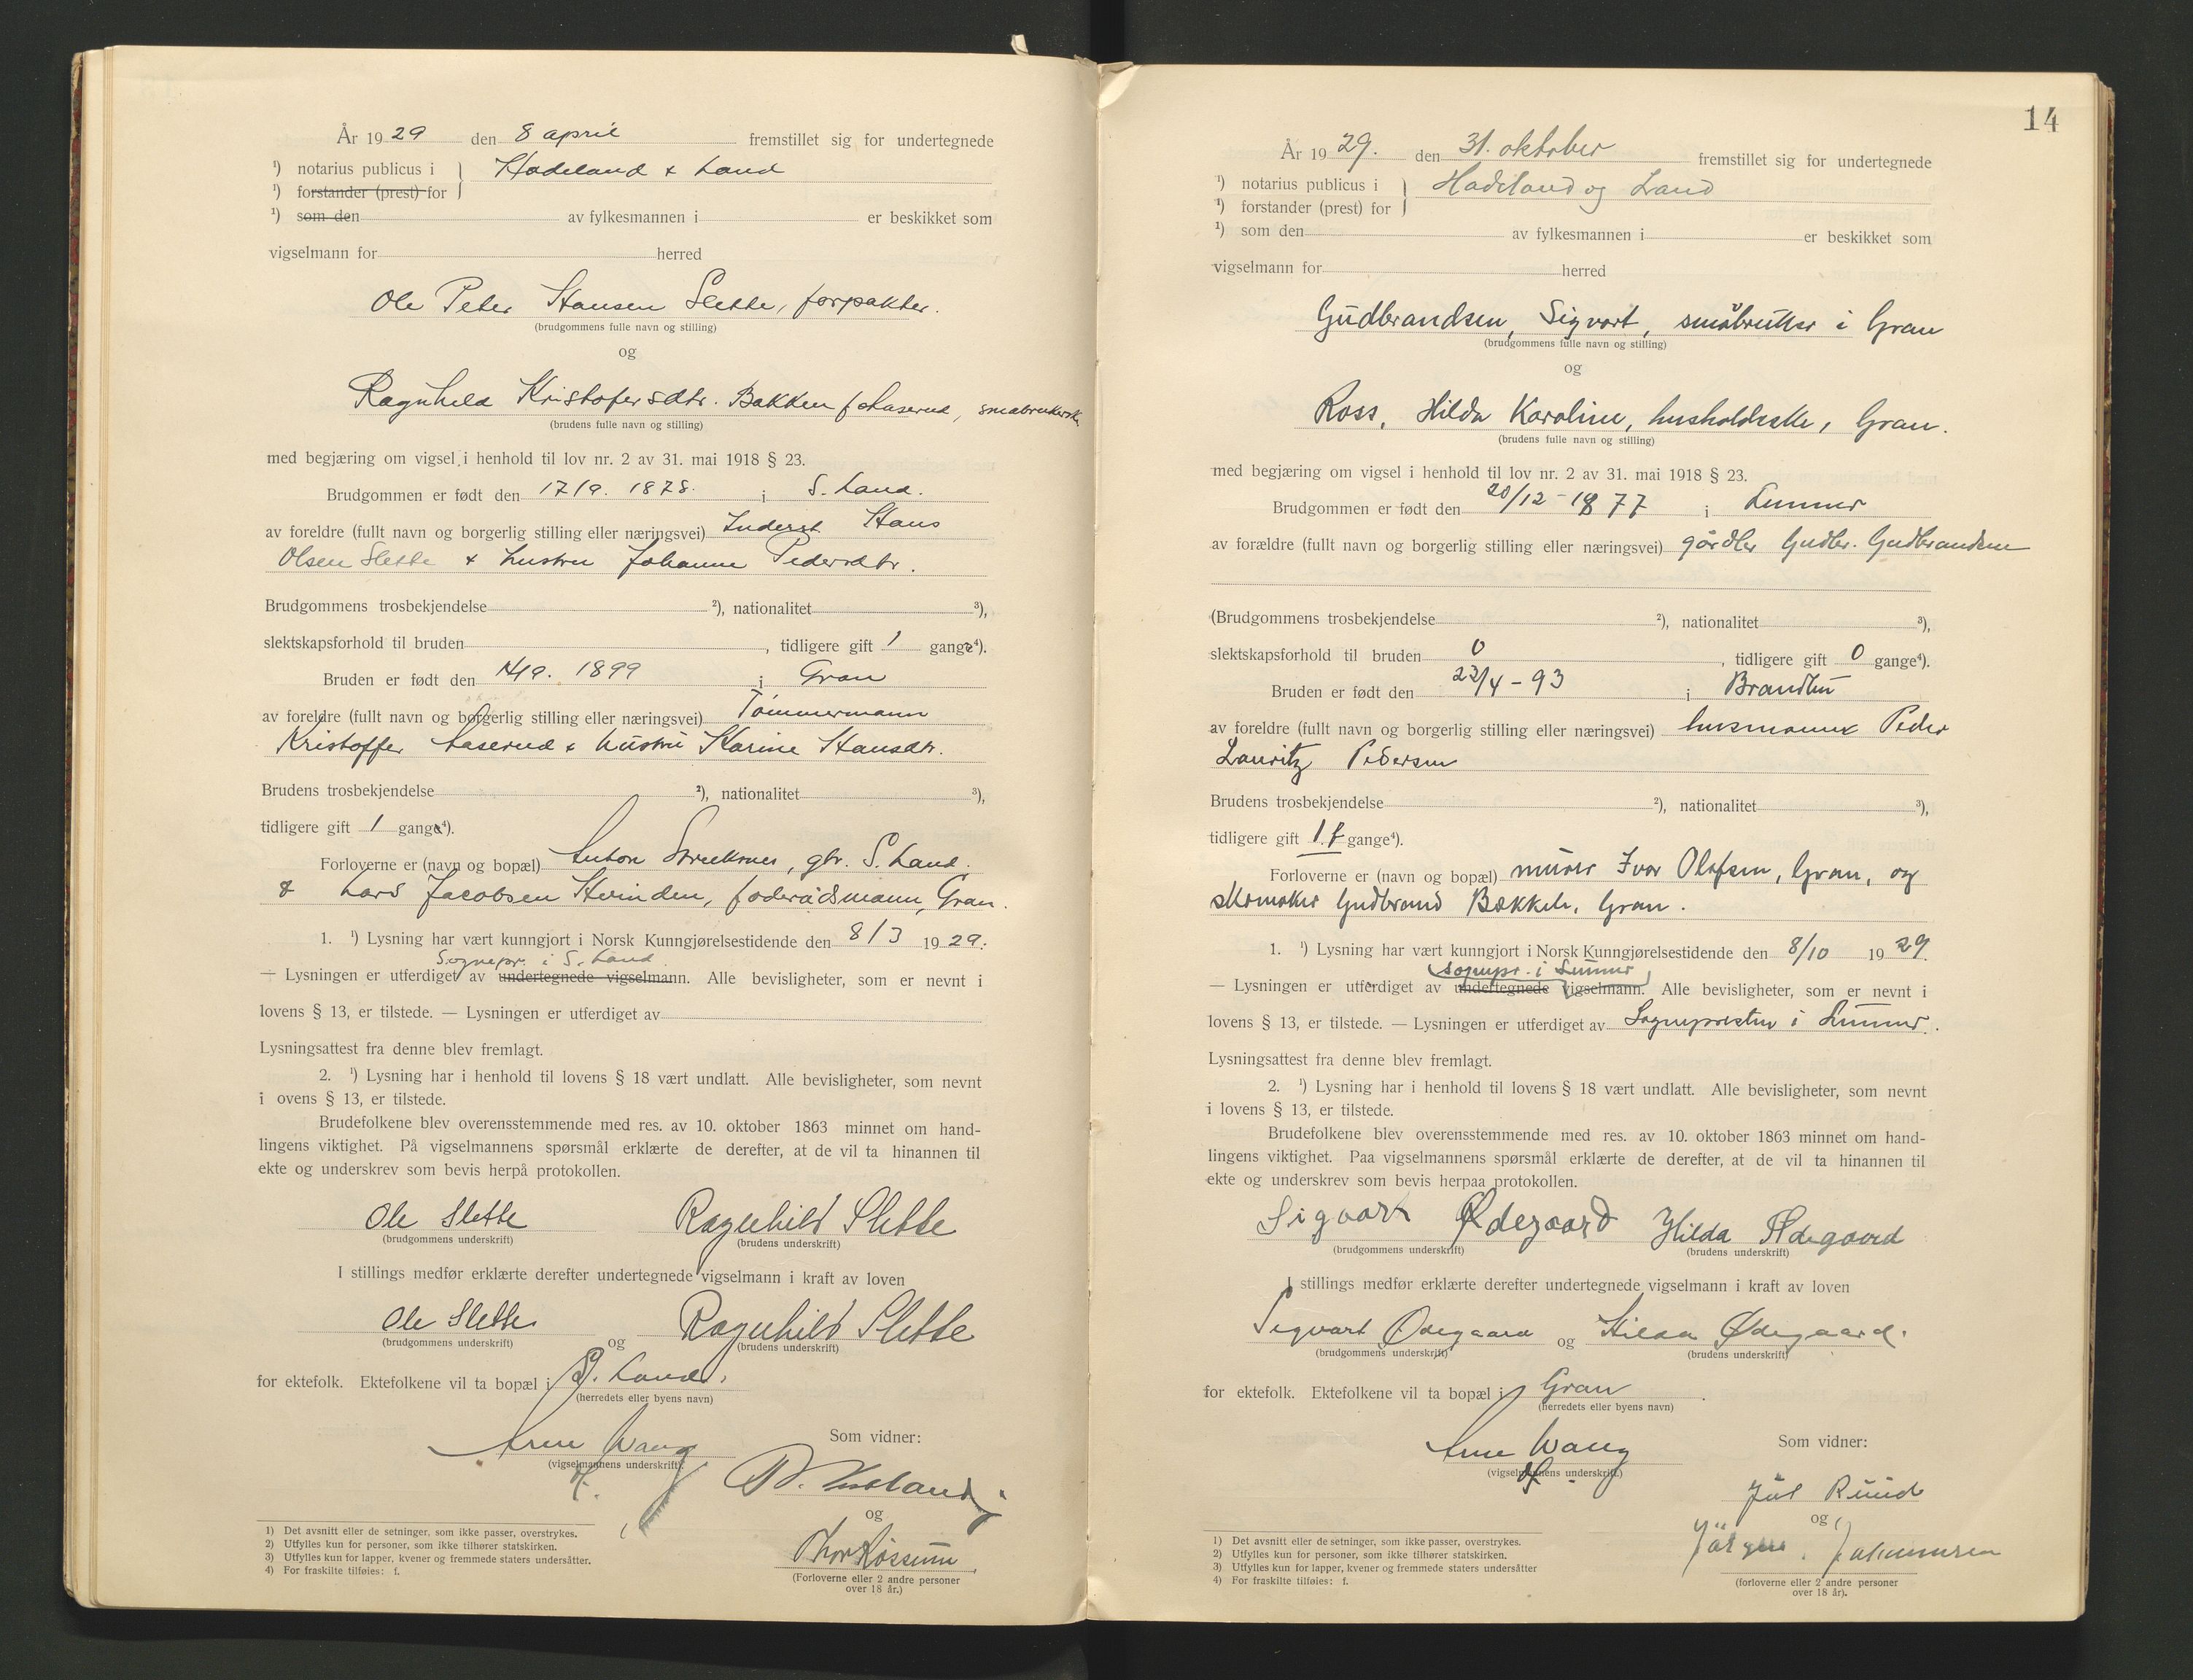 År 1929 den 8 april fremstillet sig for undertegnede
¹) notarius publicus i } Hadeland & Land
¹) forstander (prest) for
¹) som den av fylkesmannen i er beskikket som
vigselmann for herred
Ole Peter Hansen Slette, forpakter.
(brudgommens fulle navn og stilling)
og
Ragnhild Kristofersdtr. Bakken f. Laserud, småbrukerske
(brudens fulle navn og stilling)
med begjæring om vigsel i henhold til lov nr. 2 av 31. mai 1918 § 23.
Brudgommen er født den 17/9. 1878. i S. Land.
av foreldre (fullt navn og borgerlig stilling eller næringsvei) Inderst Hans
Olsen Slette & hustru Johanne Pedersdtr.
Brudgommens trosbekjendelse ²), nationalitet ³),
slektskapsforhold til bruden , tidligere gift 1 gange⁴).
Bruden er født den 1899 i Gran
av foreldre (fullt navn og borgerlig stilling eller næringsvei) Tömmermann
Kristoffer Laserud & hustru Karine Hansdtr.
Brudens trosbekjendelse ²), nationalitet ³),
tidligere gift 1 gange⁴).
Forloverne er (navn og bopæl) Anton , gbr. S. Land.
& Lars Jacobsen Hvinden, föderådsmann, Gran.
1. ¹) Lysning har vært kunngjort i Norsk Kunngjørelsestidende den 8/3 1929.
Sognepr. i S. Land
— Lysningen er utferdiget av undertegnede vigselmann. Alle bevisligheter, som er nevnt i
lovens § 13, er tilstede. — Lysningen er utferdiget av
Lysningsattest fra denne blev fremlagt.
2. ¹) Lysning har i henhold til lovens § 18 vært undlatt. Alle bevisligheter, som nevnt
i ovens § 13, er tilstede.
Brudefolkene blev overensstemmende med res. av 10. oktober 1863 minnet om hand-
lingens viktighet. På vigselmannens spørsmål erklærte de derefter, at de vil ta hinannen til
ekte og underskrev som bevis herpå protokollen.
Ole Slette Ragnhild Slette
(brudgommens underskrift) (brudens underskrift)
I stillings medfør erklærte derefter undertegnede vigselmann i kraft av loven
Ole Slette og Ragnhild Slette
(brudgommens underskrift) (brudens underskrift)
for ektefolk. Ektefolkene vil ta bopæl i S. Land.
(herredets eller byens navn)
Arne Wang Som vidner:
(vigselmannens underskrift)
og
Thor Rossum
(Forloverne eller 2 andre personer
over 18 år.)
1) Det avsnitt eller de setninger, som ikke passer, overstrykes.
2) Utfylles kun for personer, som ikke tilhører statskirken.
3) Utfylles kun for lapper, kvener og fremmede staters undersåtter.
4) For fraskilte tilføies: f.
14
År 1929. den 31. oktober fremstillet sig for undertegnede
¹) notarius publicus i } Hadeland og Land
¹) forstander (prest) for
¹) som den av fylkesmannen i er beskikket som
vigselmann for herred
Gudbrandsen, Sigvart, småbruker i Gran
(brudgommens fulle navn og stilling)
og
Ross, Hilda Karoline, husholderske, Gran.
(brudens fulle navn og stilling)
med begjæring om vigsel i henhold til lov nr. 2 av 31. mai 1918 § 23.
Brudgommen er født den 20/12 - 1877 i Lunner
av forældre (fullt navn og borgerlig stilling eller næringsvei) gårdbr Gudbr. Gudbrandsen
(Brudgommens trosbekjendelse ²), nationalitet ³),
slektskapsforhold til bruden 0 , tidligere gift 0 gange⁴).
Bruden er født den 23/4 - 93 i Brandbu
av foreldre (fullt navn og borgerlig stilling eller næringsvei) husmann Peder
Lauritz Pedersen
Brudens trosbekjendelse ²), nationalitet ³),
tidligere gift 1 f gange⁴).
Forloverne er (navn og bopæl) murer Ivar Olafsen, Gran, og
skomaker Gudbrand Bækken, Gran.
1. ¹) Lysning har vært kunngjort i Norsk Kunngjørelsestidende den 8/10 1929.
sognepr. i Lunner
— Lysningen er utferdiget av undertegnede vigselmann. Alle bevisligheter, som er nevnt i
lovens § 13, er tilstede. — Lysningen er utferdiget av Sognepresten i Lunner.
Lysningsattest fra denne blev fremlagt.
2. ¹) Lysning har i henhold til lovens § 18 vært undlatt. Alle bevisligheter, som nevnt
i lovens § 13, er tilstede.
Brudefolkene blev overensstemmende med res. av 10. oktober 1863 minnet om hand-
lingens viktighet. Paa vigselmannens spørsmål erklærte de derefter, at de vil ta hinannen til
ekte og underskrev som bevis herpaa protokollen.
Sigvart Ødegaard Hilda Ødegaard
(brudgommens underskrift) (brudens underskrift)
I stillings medfør erklærte derefter undertegnede vigselmann i kraft av loven
Sigvart Ødegaard og Hilda Ødegaard.
(brudgommens underskrift) (brudens underskrift)
for ektefolk. Ektefolkene vil ta bopæl i Gran
(herredets eller byens navn)
Arne Wang Som vidner:
(vigselmannens underskrift)
Jul Ruud
og
Jörgen Johannesen
(forloverne eller 2 andre personer
over 18 år).
1) Det avsnitt eller de setninger, som ikke passer, overstrykes.
2) Utfylles kun for personer, som ikke tilhører statskirken.
3) Utfylles kun for lapper, kvener og fremmede staters undersåtter
4) For fraskilte tilføies: f.